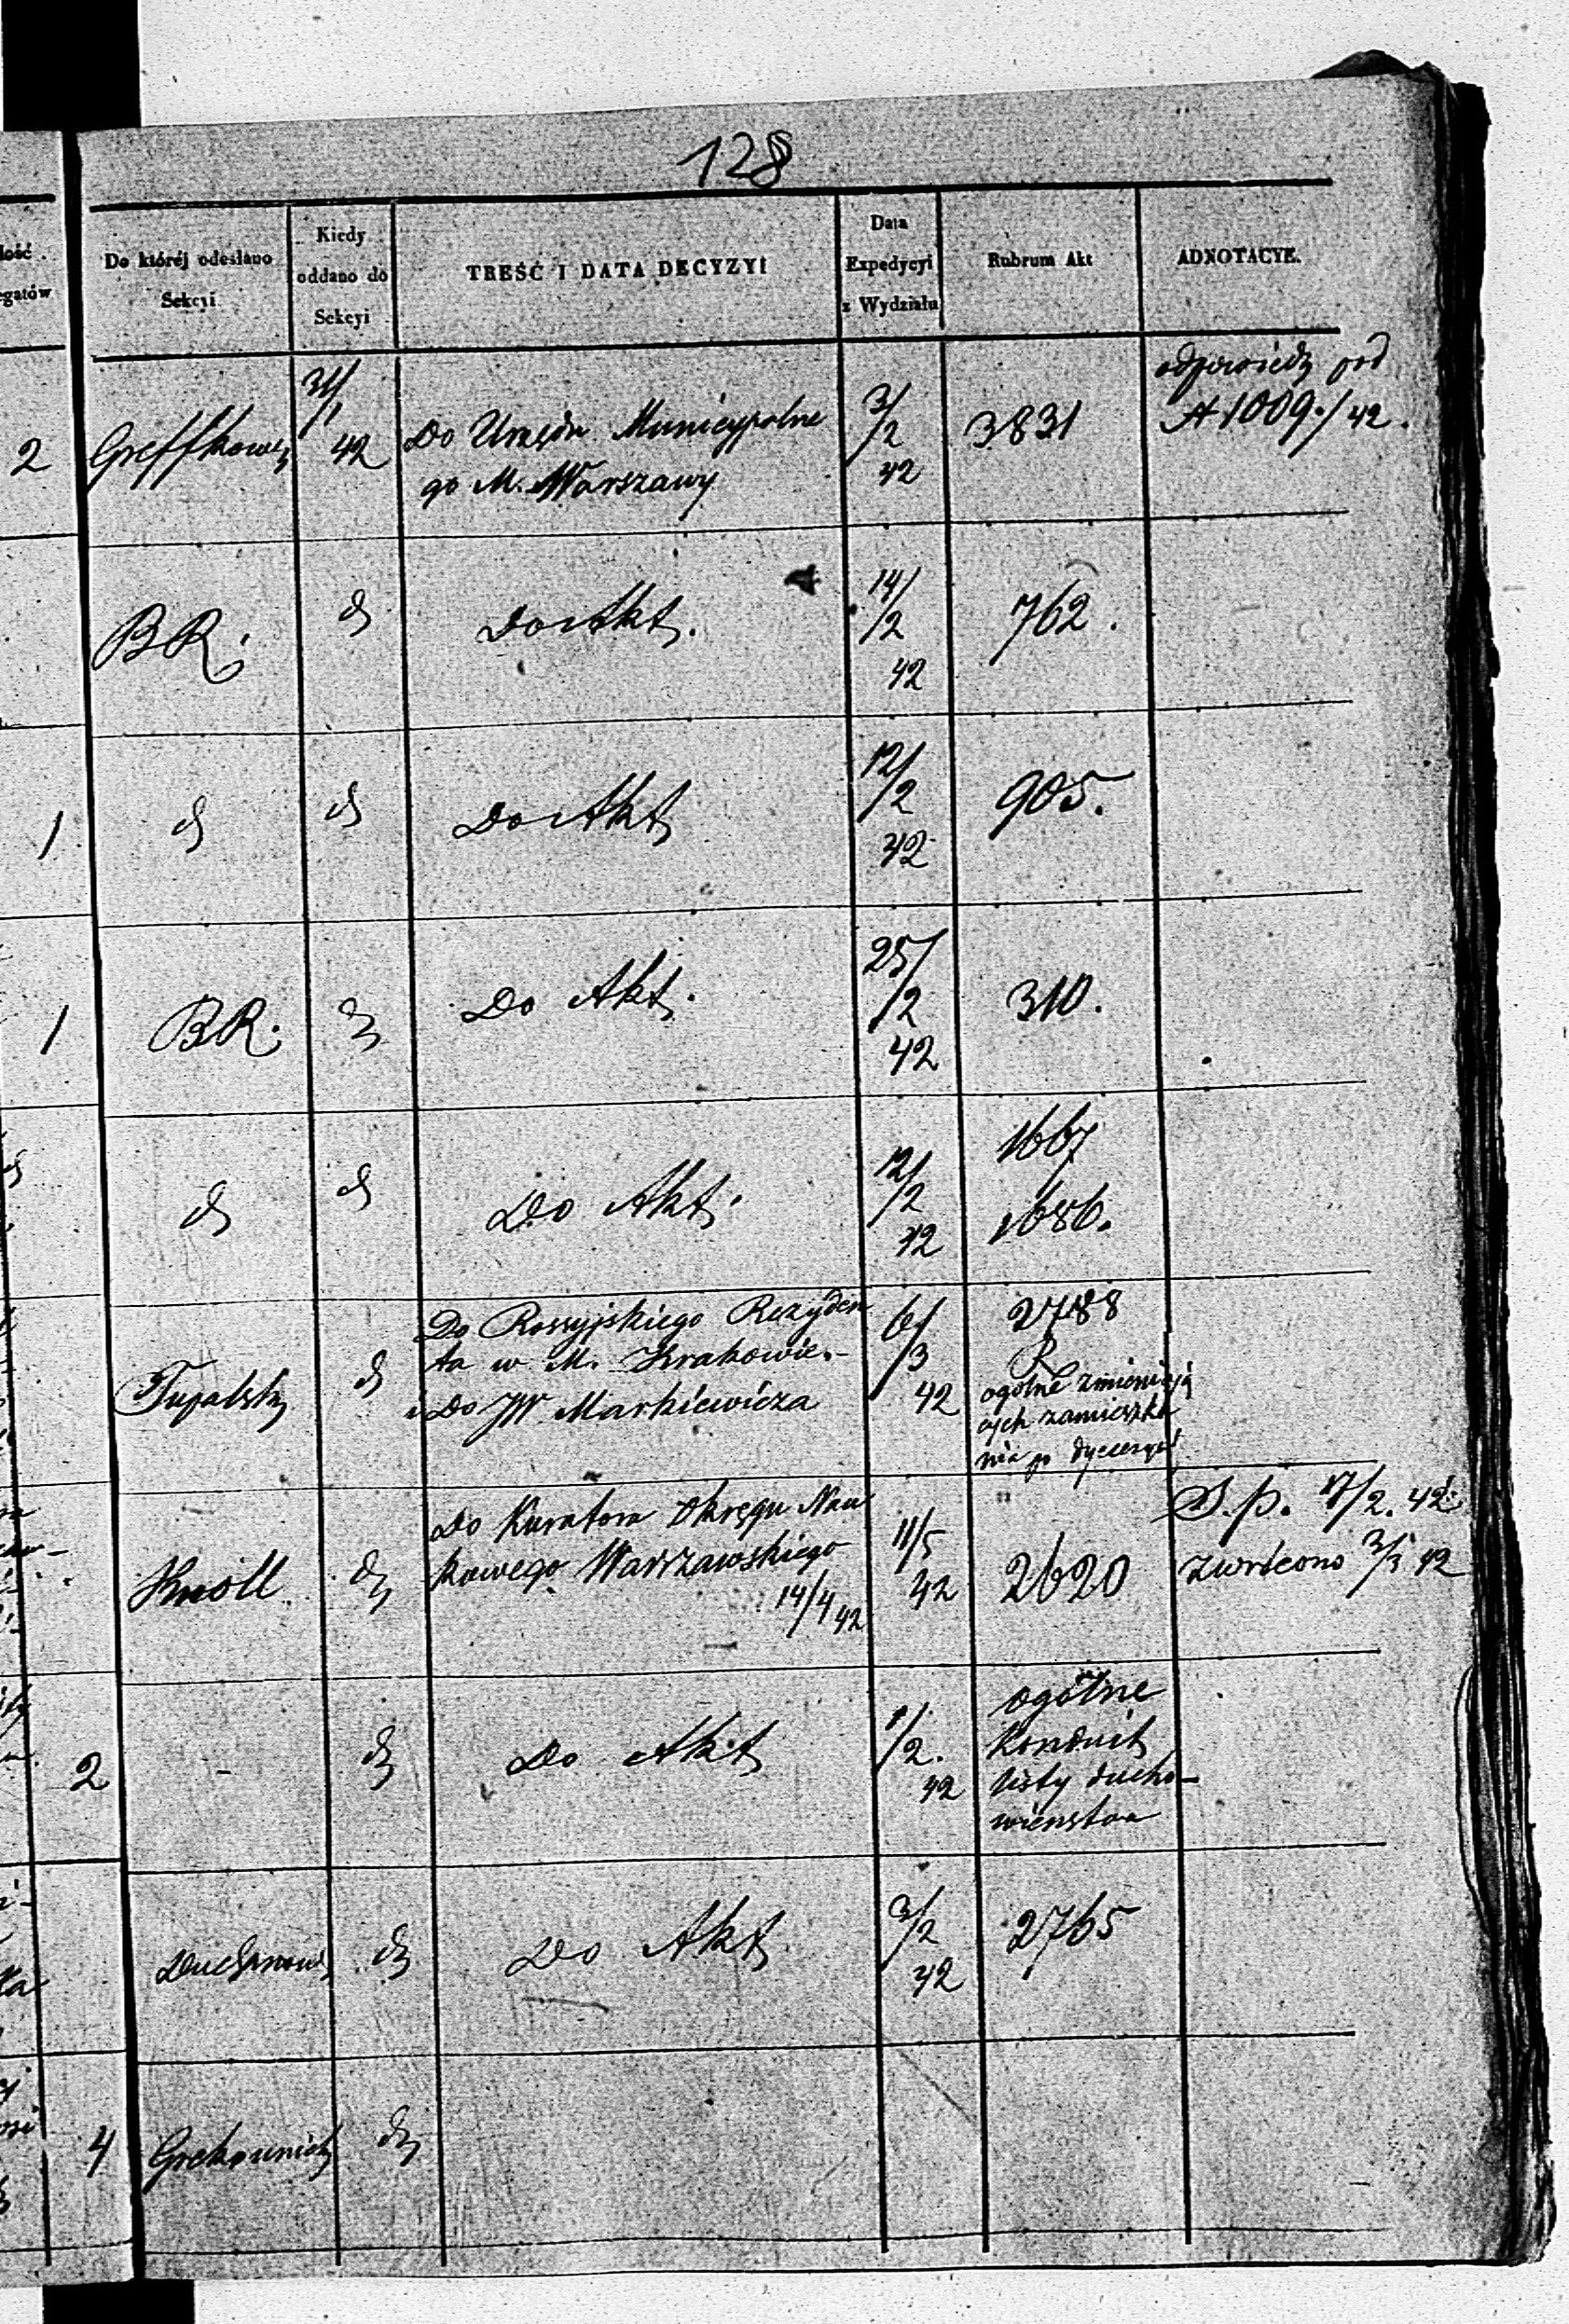 128
Do któréj odesłano
Sekcyi
Kiedy
oddano do
Sekcyi
TREŚĆ I DATA DECYZYI
Data
Expedycyi
z Wydziału
Rubrum Akt
ADNOTACYE.
2
31/1
42
Do Urzędu Municypalne
go M. Warszawy
3/2
42
3831
odpowiedz pod
1009./42.
BR.
Do Akt.
14/2
42
762.
1
Do Akt
12/2
42
905.
1
BR.
Do Akt.
25/2
42
310.
Do Akt.
12/2
42
1667
1686.
Tupalski
Do Rossyjskiego Rezyden
ta w M. Krakowie.-
i Do JW. Markiewicza
6/3
42
2788
R
ogólne zmieniają
cych zamieszka
nia
Knoll
Do Kuratora Okręgu Nau
kowego Warszawskiego
14/4 42
11/5
42
2620
S.p. 17/2. 42
zwrócono 42
2
-
Do Akt
1/2.
42
ogólne
Konduit
listy ducho-
wieństwa
Do Akt
3/2
42
2765
4